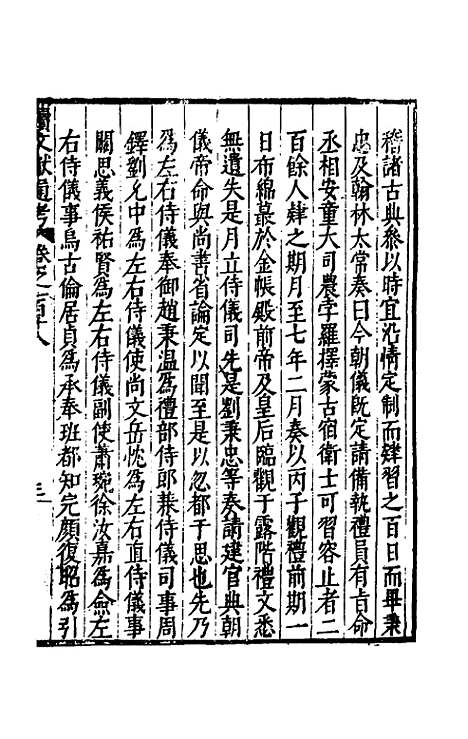 稽諸古典參以時宜沿情定制而肄習之百日而畢秉
忠及翰林太常奏曰今朝儀既定請備執禮員有旨命
丞相安童大司農孛羅擇蒙古宿衛士可習容止者二
百餘人肄之期月至七年二月奏以丙子觀禮前期一
日布綿蕞於金帳殿前帝及皇后臨觀于露階禮文悉
無遺失是月立侍儀司先是劉秉忠等奏請建官典朝
儀帝命與尚書省論定以聞至是以忽都于思也先乃
為左右侍儀奉御趙秉溫為禮部侍郎兼侍儀司事周
鐸劉允中為左右侍儀使尚文岳忱為左右直侍儀事
關思義侯祐賢為左右侍儀副使蕭琬徐汝嘉為僉左
右侍儀事烏古倫居貞為承奉班都知完顏復昭為引
續文獻通考 卷之一百十八 三